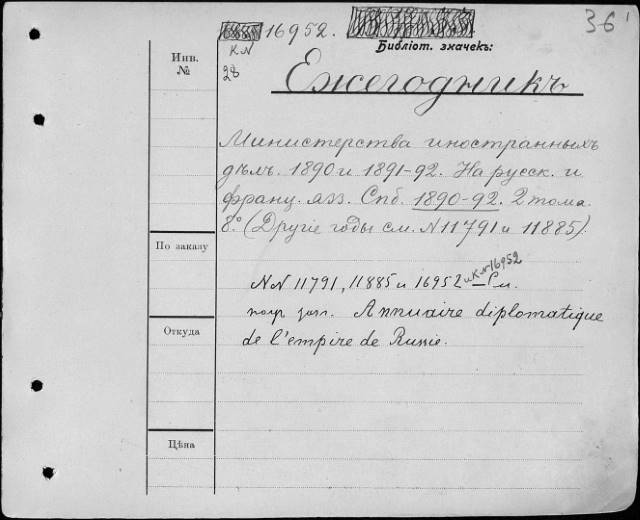 16952.
36
Библіот. значекъ:
Инв.
№
КN
28
Ежегодникъ
Министерства иностранныхъ
дѣлъ. 1890 и 1891-92. На русск. и
франц. языз. Спб. 1890-92. 2 тома.
8º. (Другіе годы см. N 11791 и 11885).
По заказу
NN 11791, 11885 и 16952 и КN 16952 – См.
Annuaire diplomatique
Откуда
de l'empire de Russie.
Цѣна